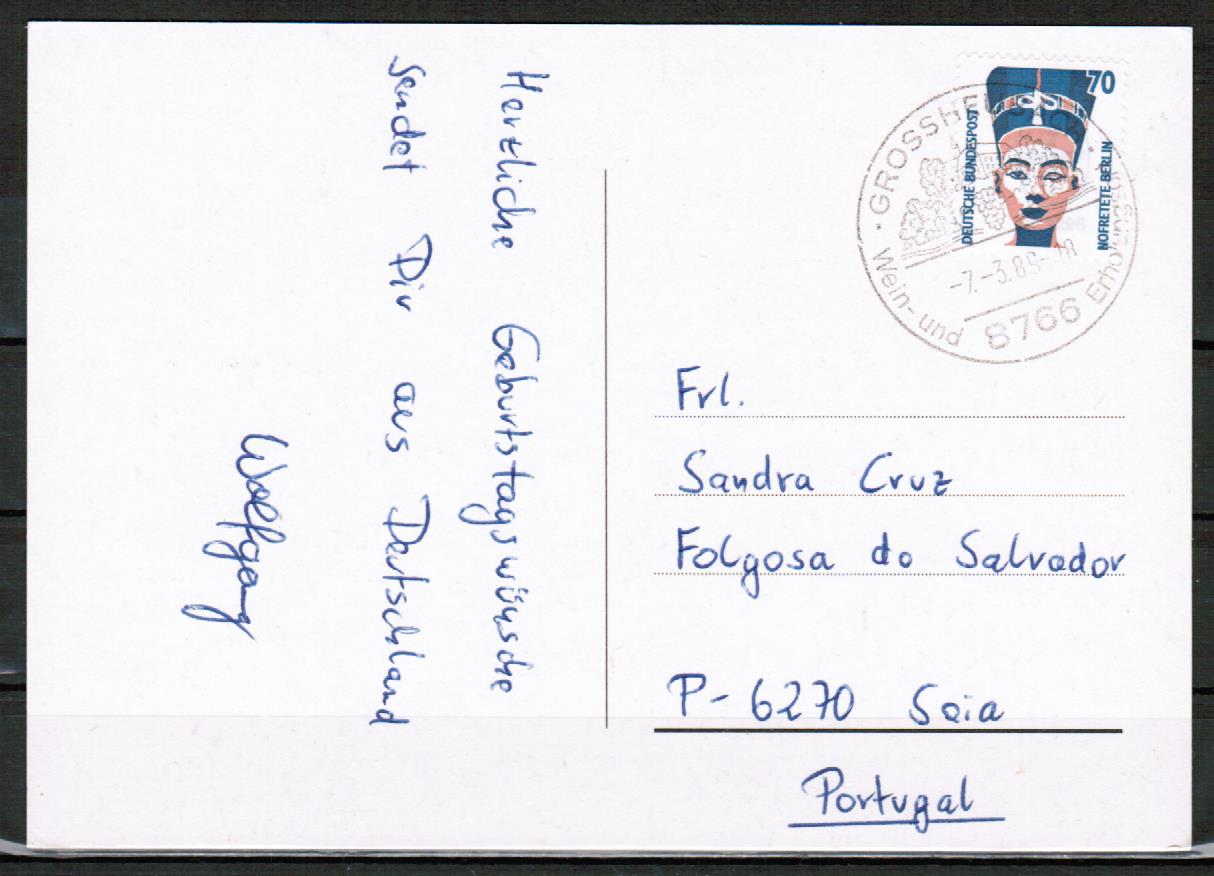 Herzliche Geburtstagswünsche
sendet Dir aus Deutschland
Wolfgang
70
DEUTSCHE BUNDESPOST
NOFRETETE BERLIN
Wein- und
-7.-3.89-18
8766
Frl.
Sandra Cruz
Folgosa do Salvador
P-6270 Seia
Portugal